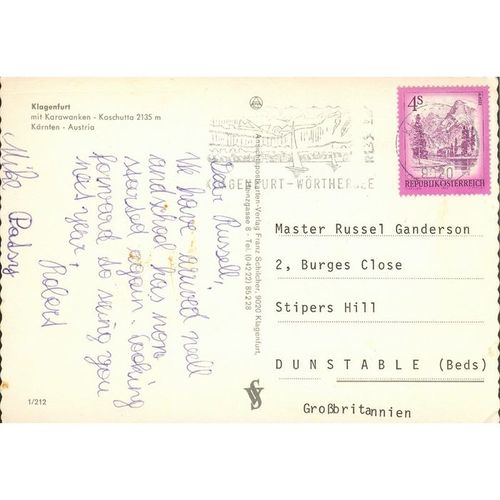 Klagenfurt
mit Karawanken - Koschutta 2135 m
Kärnten - Austria
Dear Russell,
We have arrived well
and school has now
started again. Looking
forward to seing you
next year,
Robert
Patsy
Mike
1/212
Ansichtspostkarten-Verlag Franz Schilcher, 9020 Klagenfurt,
Tel. (04222) 85228
KLAGENFURT-WÖRTHERSEE
4S
REPUBLIK ÖSTERREICH
Master Russel Ganderson
2, Burges Close
Stipers Hill
DUNSTABLE (Beds)
Großbritannien